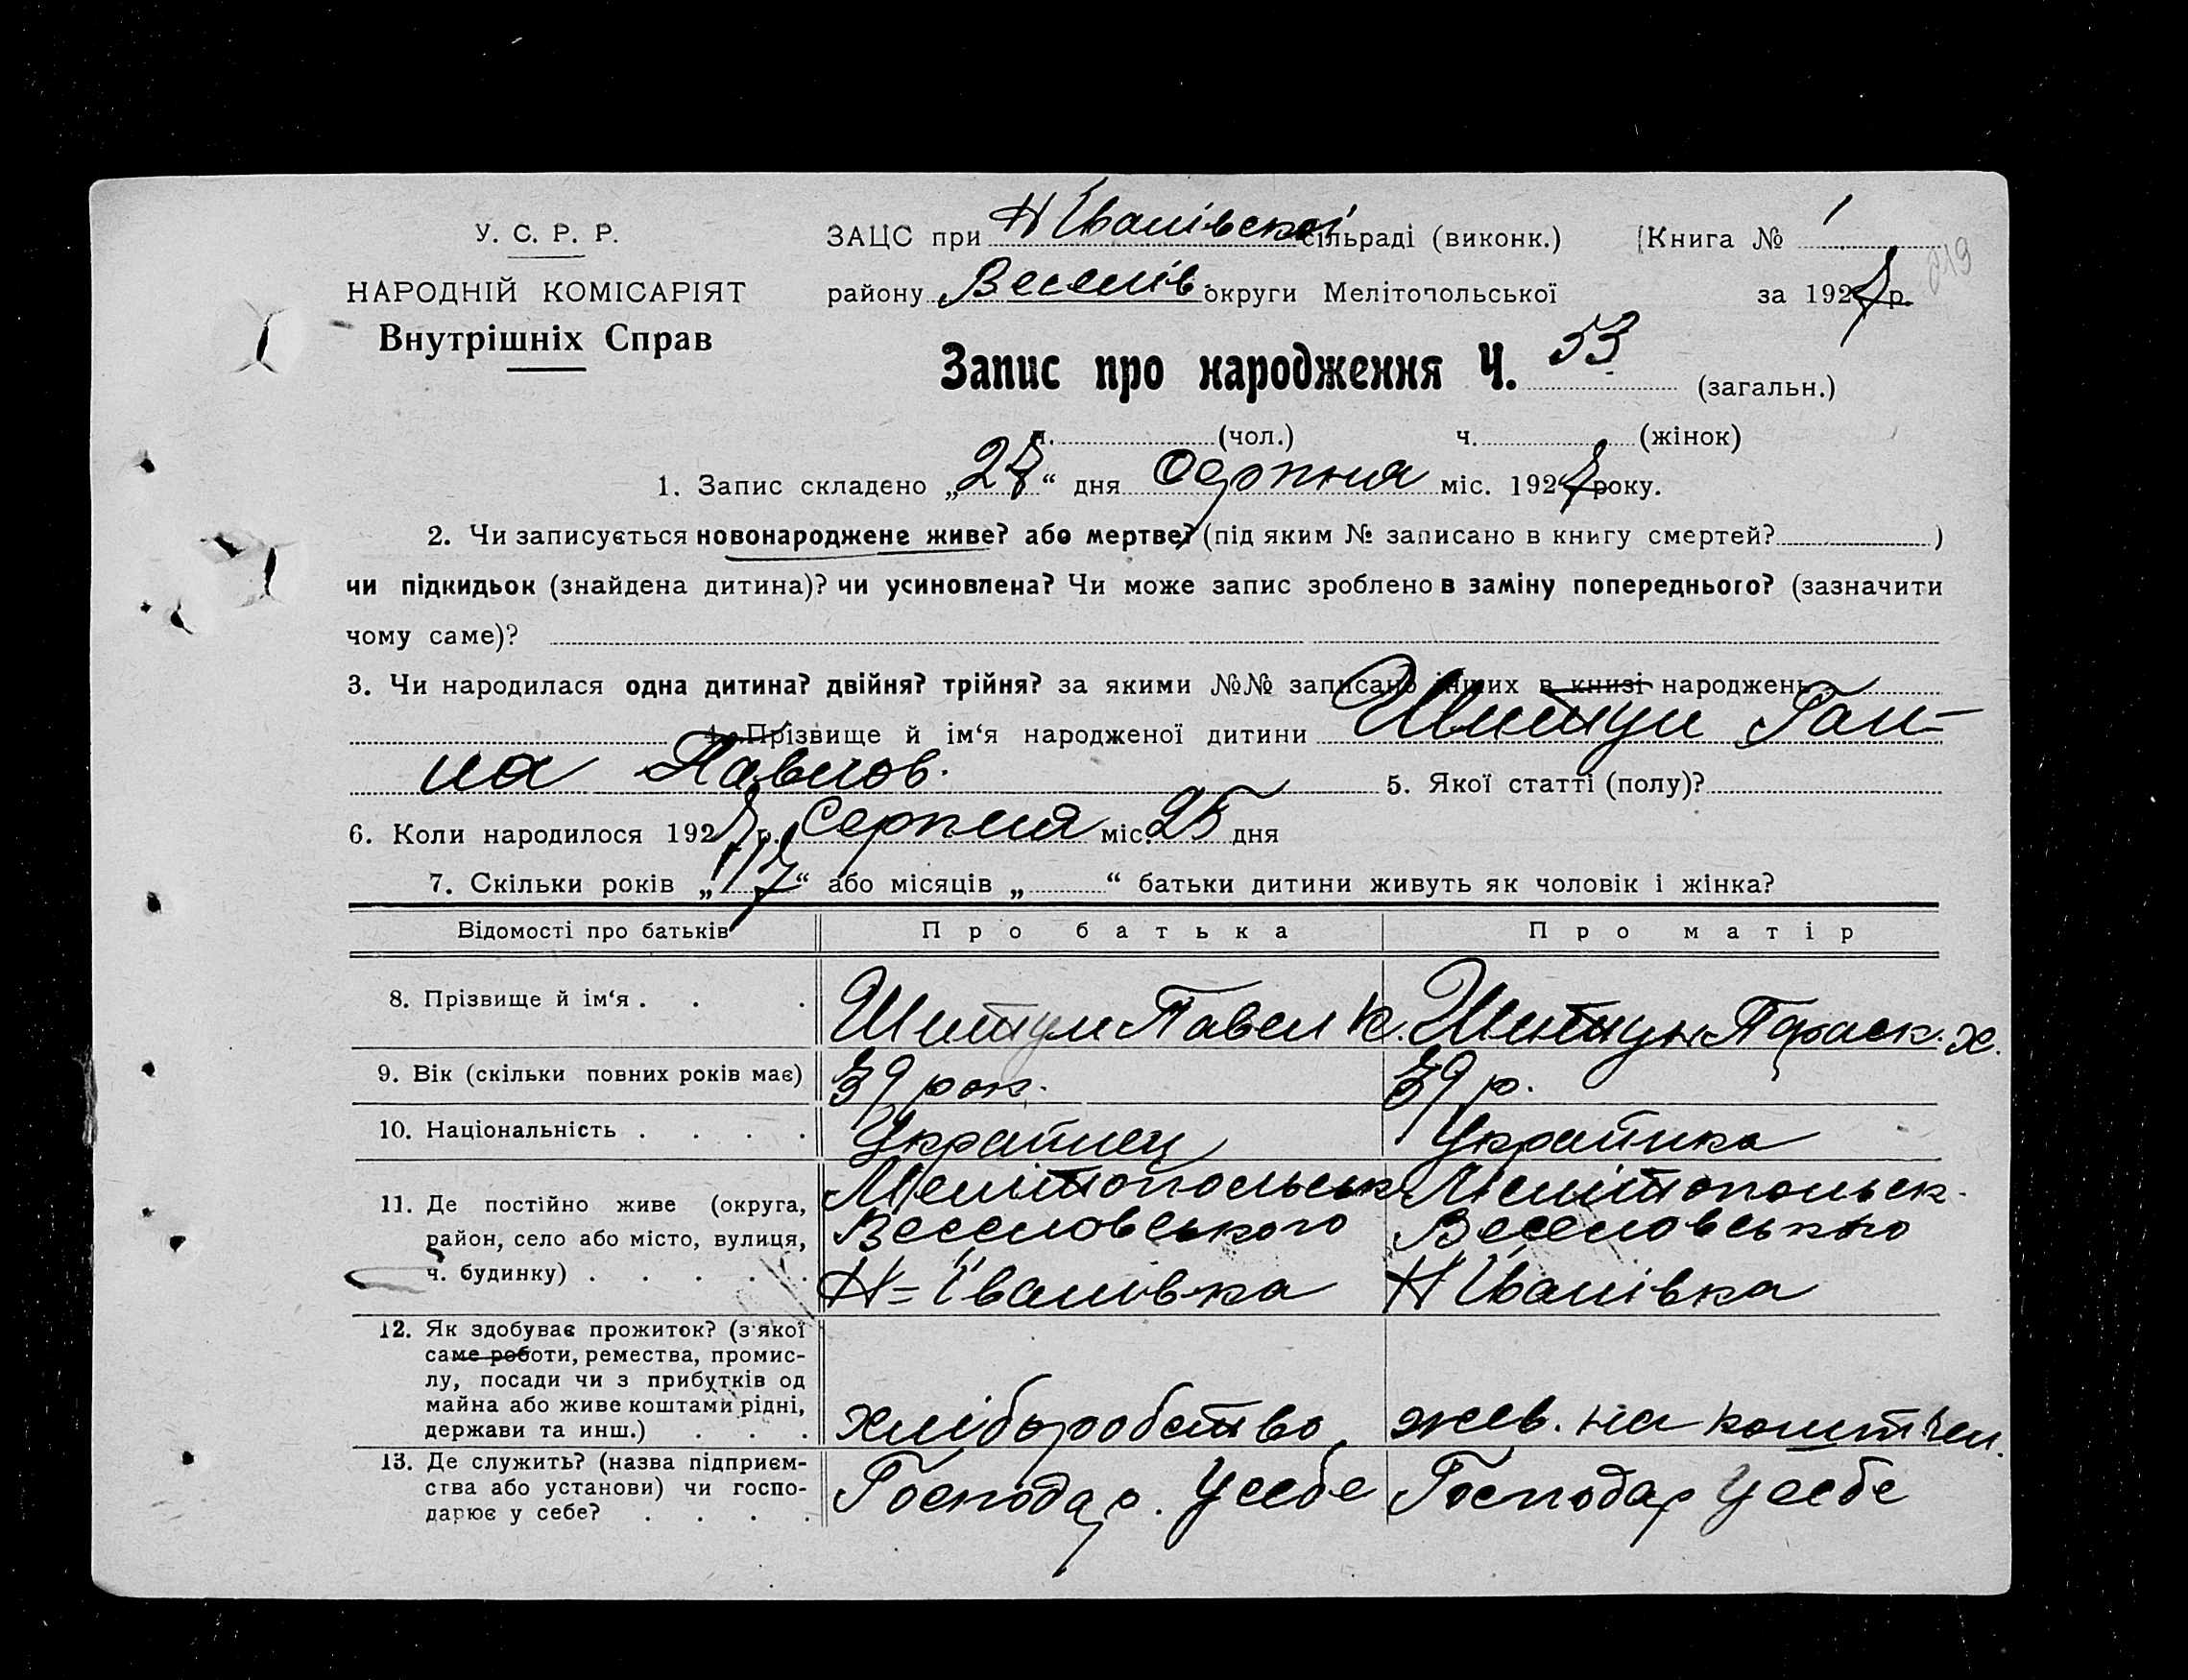 У. С. Р. Р.
НАРОДНІЙ КОМІСАРІЯТ
Внутрішніх Справ
ЗАЦС при Н Іванівської сільраді (виконк.) Книга № 1
219
району Веселів. округи Мелітопольської за 1927 р.
Запис про народження Ч. 53 (загальн.)
ч. (чол.) ч. (жінок)
1. Запис складено „27“ дня Серпня міс. 1927 року.
2. Чи записується новонароджене живе? або мертве? (під яким № записано в книгу смертей? )
чи підкидьок (знайдена дитина)? чи усиновлена? Чи може запис зроблено в заміну попереднього? (зазначити
чому саме)?
3. Чи народилася одна дитина? двійня? трійня? за якими №№ записано інших в книзі народжень
4. Прізвище й ім‘я народженої дитини Шитун Ган-
на Павлов. 5. Якої статті (полу)?
6. Коли народилося 1927 р. Серпня міс. 25 дня
7. Скільки років „17“ або місяців „ “ батьки дитини живуть як чоловік і жінка?
Відомості про батьків Про батька Про матір
8. Прізвище й ім‘я . . . Павел К. Параск. Х.
9. Вік (скільки повних років має) 39 рок. 39 р.
10. Національність . . . . Українец Українка
11. Де постійно живе (округа, Мелітопольськ Мелітопольск.
район, село або місто, вулиця, Веселовського Веселовського
ч. будинку) . . . . . Н=Іванівка Н Іванівка
12. Як здобуває прожиток? (з якої
саме роботи, ремества, промис-
лу, посади чи з прибутків од
майна або живе коштами рідні,
держави та инш.) . . . хліборобство жев. на кошт чол.
13. Де служить? (назва підприєм-
ства або установи) чи госпо-
дарює у себе? . . . . Господар. у себе Господар у себе